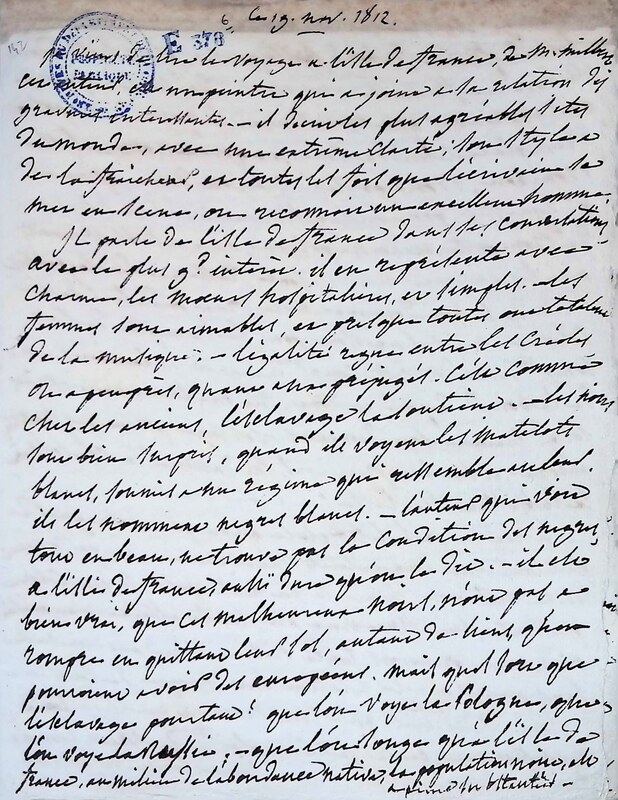 6
ce 19. nov. 1812.
142
E 378
je viens de lire le voyage a l'ille de france, de M. milbert
cet auteur, est un peintre qui a joint a sa relation des
gravures interessantes. — il decrit les plus agréables sites
du monde, avec une extrême clarté, son style a
de la fraîcheur, et toutes les fois que l'écrivain se
met en scene, on reconnoit un excellent homme.
Il parle de l'ille de france dans ses conversations
avec le plus gd intérêt. il en représente avec
charme, les mœurs hospitalières, et simples. — les
femmes sont aimables, et presque toutes ont le talent
de la musique. — l'égalité regne entre les Créoles
ou a peu près, quant aux préjugés. C'est comme
chez les anciens, l'esclavage la soutient. — les noirs
sont bien surpris, quand ils voyent les matelots
blancs, soumis a un régime qui ressemble au leur.
ils les nomment negres blancs. — l'auteur qui voit
tout en beau, ne trouve pas la condition des negres,
a l'ille de france, aussi dure qu'on le dit. — il est
bien vrai, que ces malheureux noirs, n'ont pas a
rompre en quittant leur sol, autant de liens, qu'en
pourroient avoir des européens. mais quel sort que
l'esclavage pourtant! que l'on voye la Pologne, que
l'on voye la Russie. — que l'on songe qu'a l'ille de
france, au milieu de l'abondance native, la population noire, est
a peine substantée —